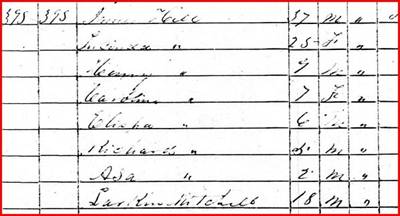 395 395 Hill 37 M " "
Lucinda " 25 F "
Henry " 9 M "
Caroline " 7 F "
Elisha " 6 M "
Richard " M "
Asa " 2 M "
Larkin Mitchell 18 M "